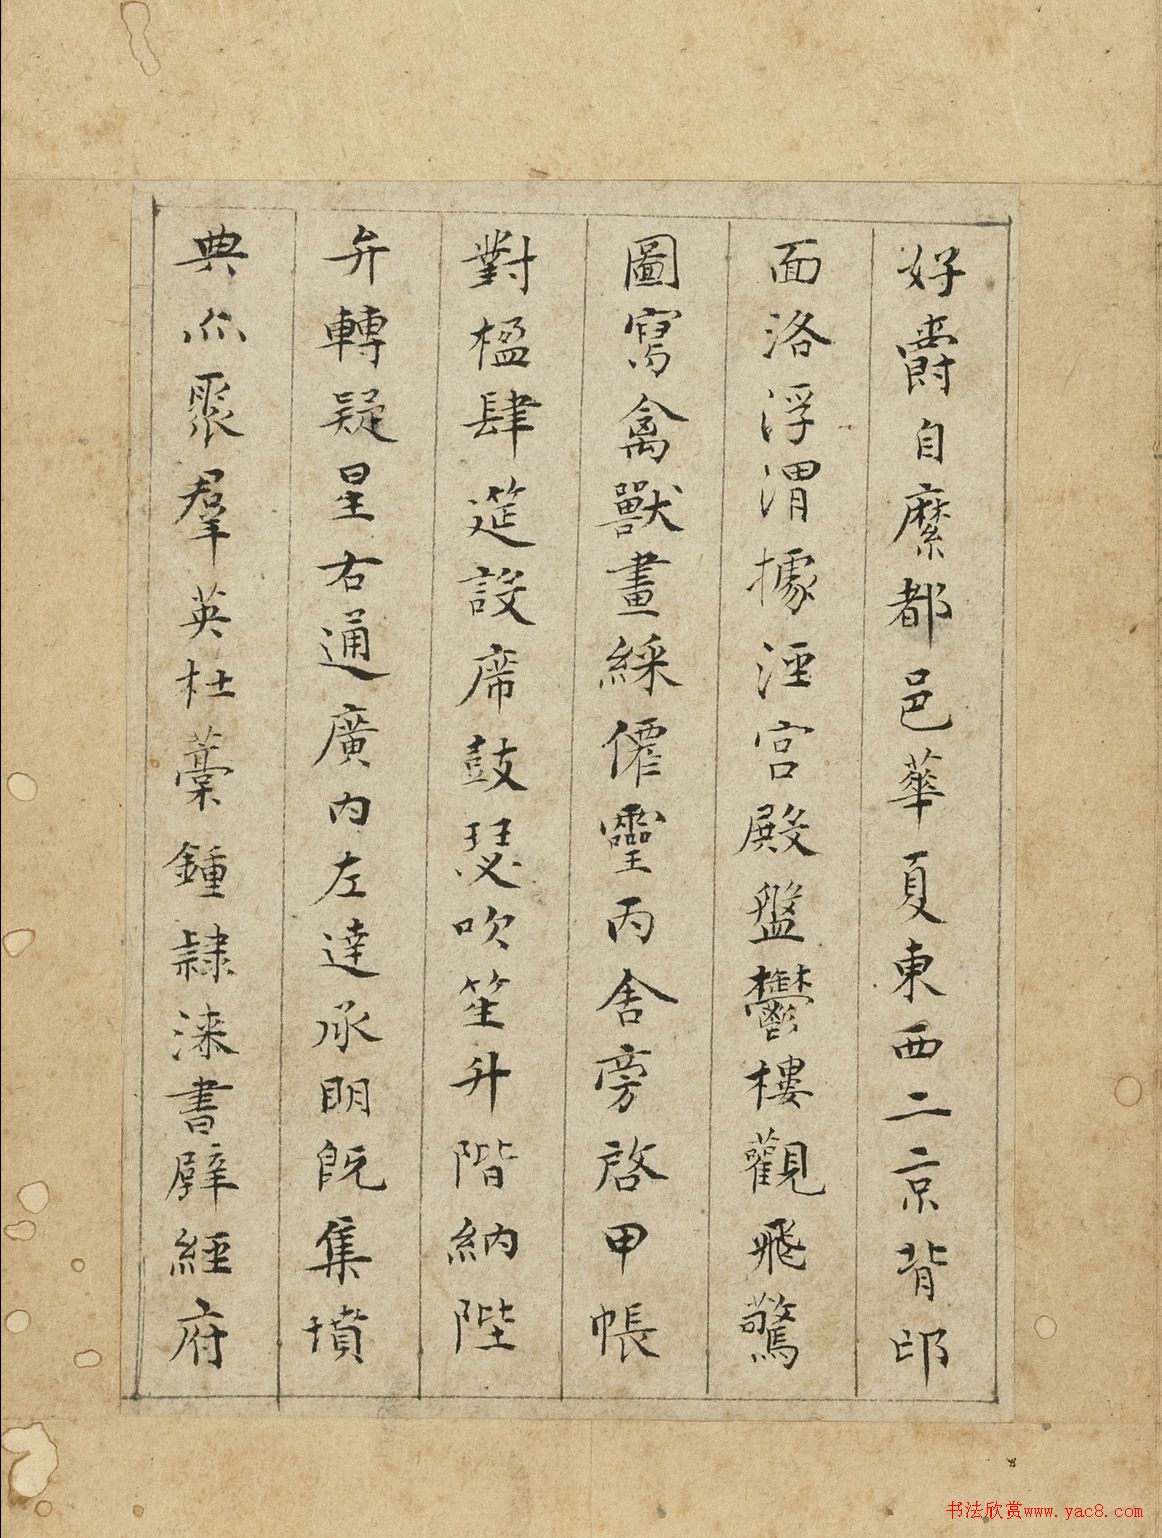 好爵自縻都邑華夏東西二京背邙
面洛浮渭據涇宮殿盤鬱樓觀飛驚
圖寫禽獸畫綵僊靈丙舍旁啓甲帳
對楹肆筵設席鼓瑟吹笙升階納陛
弁轉疑星右通廣内左達承明既集墳
典亦聚羣英杜藁鍾隸漆書壁經府
书法欣赏www.yac8.com